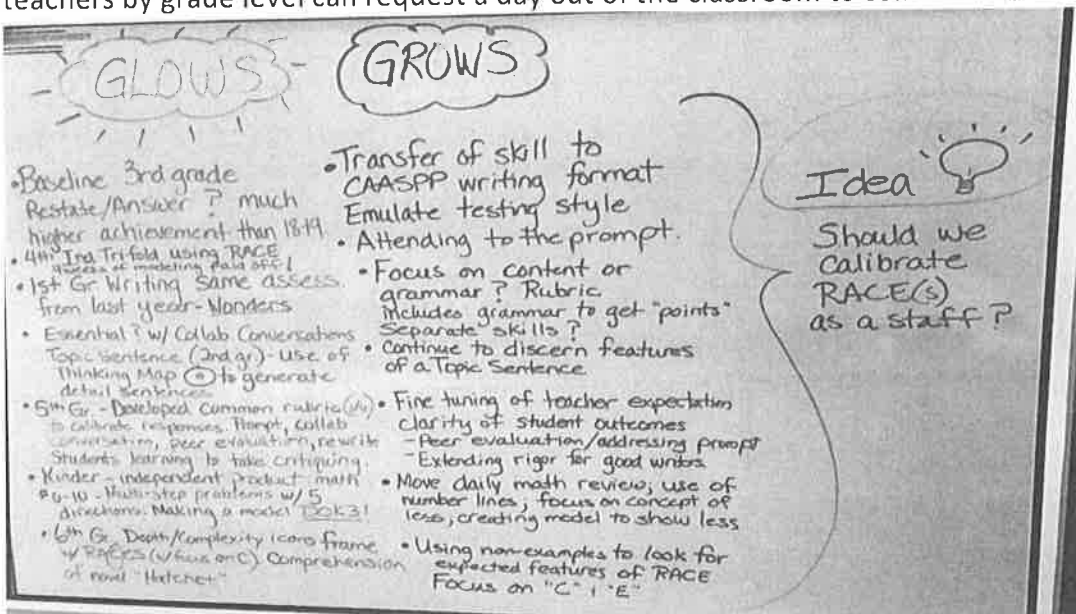 teachers by grade level can request a day out of the classroom to
GLOWS
• Baseline 3rd grade
Restate/Answer ? much
higher achievement than 18-19.
• 4th Trifold using RACE
of modeling paid off!
• 1st Gr Writing same assess.
from last year - Wonders
• Essential ? w/ Collab Conversations
Topic Sentence (2nd gr) - Use of
Thinking Map to generate
detail sentences
• 5th Gr. - Developed common rubric
to calibrate responses. Prompt, collab
conversation, peer evaluation, rewrite
Students learning to take critiquing.
• Kinder - independent product math
- Multi-step problems w/ 5
directions. Making a model DOK3!
• 6th Gr Depth/Complexity icons frame
w/ RACES (w/ focus on C). Comprehension
of novel "Hatchet"
GROWS
• Transfer of skill to
CAASPP writing format
Emulate testing style
• Attending to the prompt.
• Focus on content or
grammar? Rubric
includes grammar to get "points"
Separate skills?
• Continue to discern features
of a Topic Sentence
• Fine tuning of teacher expectation
clarity of student outcomes
- Peer evaluation/addressing prompt
- Extending rigor for good writers
• Move daily math review; use of
number lines; focus on concept of
less, creating model to show less
• Using non-examples to look for
expected features of RACE
Focus on "C" "E"
Idea
Should we
calibrate
RACE(s)
as a staff?